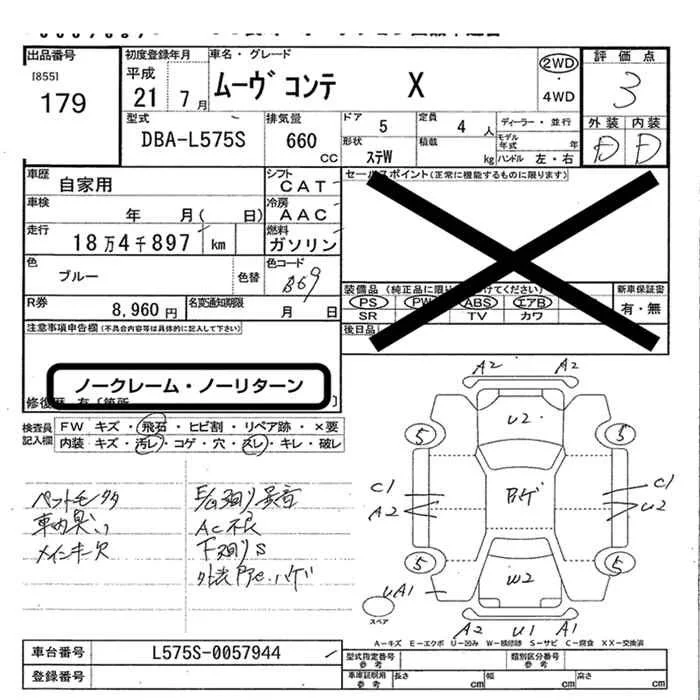 出品番号
[855]
179
初度登録年月
平成
21 7月
車名・グレード
ムーヴ コンテ X
2WD
・
4WD
評価点
3
外装 内装
D D
型式
DBA-L575S
排気量
660 cc
ドア 5
定員 4人
形状 ステW
積載 kg
ディーラー・並行
モデル年式 年
ハンドル 左・右
車歴
自家用
シフト
CAT
車検
年 月( 日)
冷房
AAC
走行
18万4千897 km
燃料
ガソリン
色
ブルー
色替
色コード
B69
R券
8,960円
名変通知期限
月 日
セールスポイント(正常に機能するものに限ります)
装備品
PS PW ABS エアB
SR TV カワ
後日品
新車保証書
有・無
注意事項申告欄(不具合内容等は具体的に記入して下さい)
ノークレーム・ノーリターン
検査員
記入欄
FW キズ・飛石・ヒビ割・リペア跡・×要
内装 キズ・汚レ・コゲ・穴・スレ・キレ・破レ
車内臭い
メインキー欠
AC不良
下廻りS
A2 A2
U2
5 5
C1
A2
Bゲ
C1
U2
5 5
W2
UA1
A2 U1 A1
スペア
A-キズ E-エクボ U-凹み W-補修跡 S-サビ C-腐食 XX-交換済
車台番号
L575S-0057944
登録番号
型式指定番号
参考
類別区分番号
参考
車庫証明用
参考
長さ cm
幅 cm
高さ cm